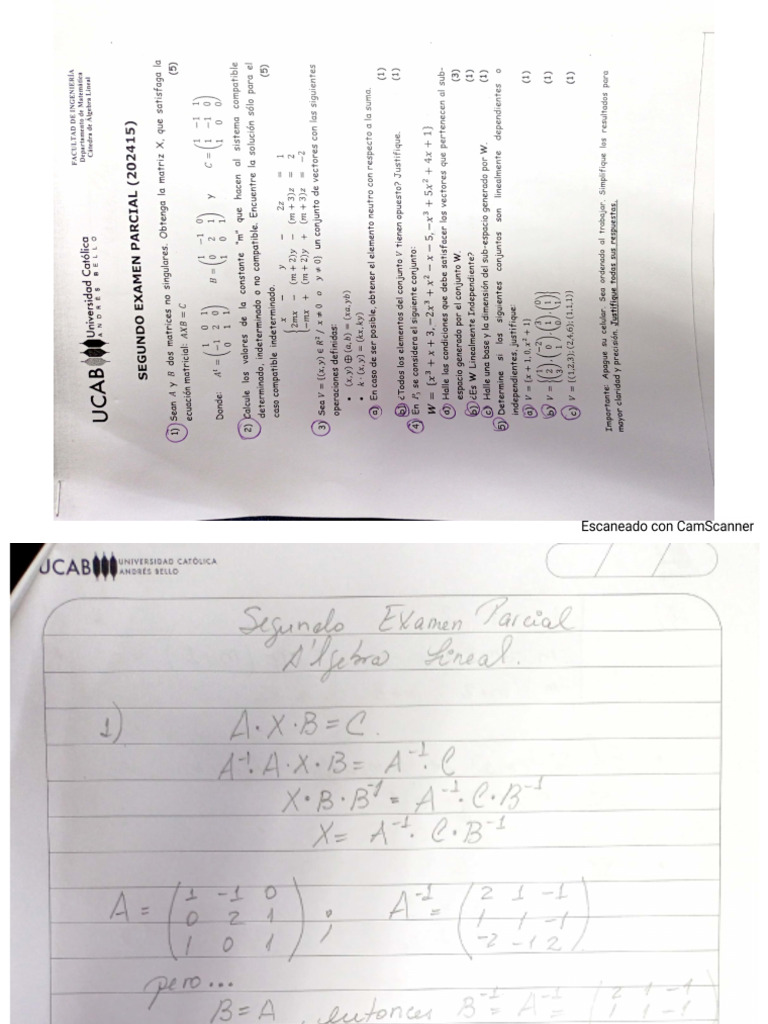 UCAB Universidad Católica
ANDRÉS BELLO
FACULTAD DE INGENIERÍA
Departamento de Matemática
Cátedra de Álgebra Lineal
SEGUNDO EXAMEN PARCIAL (202415)
1) Sean A y B dos matrices no singulares. Obtenga la matriz X, que satisfaga la
ecuación matricial: AXB = C (5)
Donde: Aᵗ = (1 0 1; -1 2 0; 0 1 1) B = (1 -1 0; 0 2 1; 1 0 1) y C = (1 -1 1; 1 -1 0; 1 0 0)
2) Calcule los valores de la constante "m" que hacen al sistema compatible
determinado, indeterminado o no compatible. Encuentre la solución sólo para el
caso compatible indeterminado. (5)
x - y - 2z = 1
2mx - (m+2)y - (m+3)z = 2
-mx + (m+2)y + (m+3)z = -2
3) Sea V = {(x,y) ∈ R² / x ≠ 0 o y ≠ 0} un conjunto de vectores con las siguientes
operaciones definidas:
• (x,y) ⊕ (a,b) = (xa, yb)
• k·(x,y) = (kx, ky)
a) En caso de ser posible, obtener el elemento neutro con respecto a la suma. (1)
b) ¿Todos los elementos del conjunto V tienen opuesto? Justifique. (1)
4) En P₃ se considera el siguiente conjunto:
W = {x³ + x + 3, -2x³ + x² - x - 5, -x³ + 5x² + 4x + 1}
a) Halle las condiciones que debe satisfacer los vectores que pertenecen al sub-
espacio generado por el conjunto W. (3)
b) ¿Es W Linealmente Independiente? (1)
c) Halle una base y la dimensión del sub-espacio generado por W. (1)
5) Determine si los siguientes conjuntos son linealmente dependientes o
independientes, justifique:
a) V = {x + 1, 0, x² + 1} (1)
b) (1)
c) V = {(1,2,3); (2,4,6); (1,1,1)} (1)
Importante: Apague su celular. Sea ordenado al trabajar. Simplifique los resultados para
mayor claridad y precisión. Justifique todas sus respuestas.
Escaneado con CamScanner
UCAB UNIVERSIDAD CATÓLICA
ANDRÉS BELLO
Segundo Examen Parcial
Álgebra Lineal.
1) A·X·B = C.
A⁻¹·A·X·B = A⁻¹·C
X·B·B⁻¹ = A⁻¹·C·B⁻¹
X = A⁻¹·C·B⁻¹
A = (1 -1 0; 0 2 1; 1 0 1) ; A⁻¹ = (2 1 -1; 1 1 -1; -2 -1 2)
pero...
B = A, entonces B⁻¹ = A⁻¹ = (2 1 -1; 1 1 -1